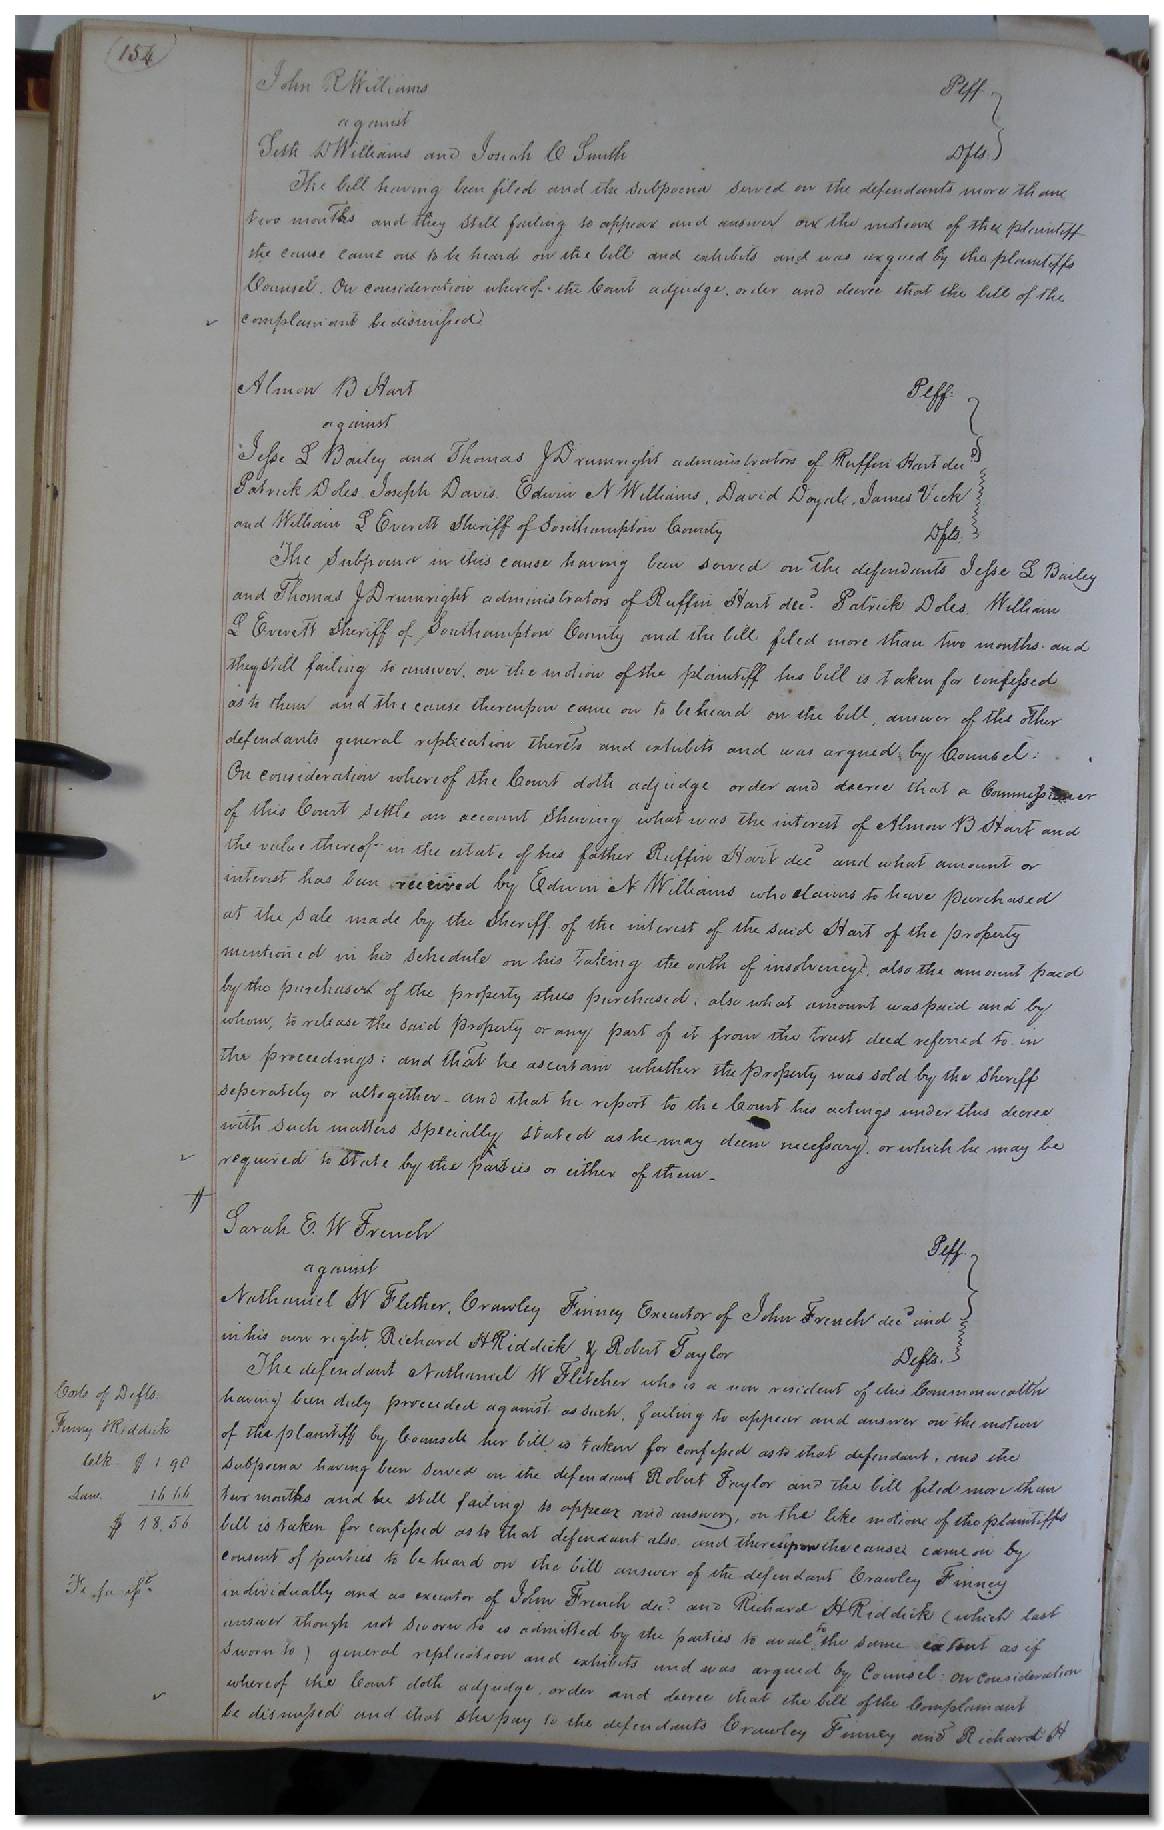 154
John R Williams Plff
against
Seth D Williams and Josiah C Smith Dfts.
The bill having been filed and the subpoena served on the defendants more than
two months and they still failing to appear and answer on the motion of the plaintiff
the cause came on to be heard on the bill and exhibits and was argued by the plaintiffs
Counsel. On consideration whereof the Court adjudge, order and decree that the bill of the
complainant be dismissed
Almon B Hart Plff.
against
Jesse L Bailey and Thomas J Drumright administrators of Ruffin Hart decd
Patrick Doles, Joseph Davis, Edwin N Williams, David Doyal, James Vick
and William L Everett Sheriff of Southampton County Dfts.
The Subpoena in this cause having been served on the defendants Jesse L Bailey
and Thomas J Drumright administrators of Ruffin Hart decd. Patrick Doles, William
L Everett Sheriff of Southampton County and the bill filed more than two months and
they still failing to answer, on the motion of the plaintiff his bill is taken for confessed
as to them and the cause thereupon came on to be heard on the bill, answer of the other
defendants general replication thereto and exhibits and was argued by Counsel:
On consideration whereof the Court doth adjudge order and decree that a Commissioner
of this Court settle an account shewing what was the interest of Almon B Hart and
the value thereof in the estate of his father Ruffin Hart decd and what amount or
interest has been received by Edwin N Williams who claims to have purchased
at the sale made by the Sheriff of the interest of the said Hart of the property
mentioned in his schedule on his taking the oath of insolvency, also the amount paid
by the purchaser of the property thus purchased, also what amount was paid and by
whom, to release the said property or any part of it from the trust deed referred to in
the proceedings: and that he ascertain whether the property was sold by the Sheriff
seperately or altogether - and that he report to the Court his actings under this decree
with such matters specially stated as he may deem necessary, or which he may be
required to state by the parties or either of them -
Sarah E. W French Plff.
against
Nathaniel W Flether, Crawley Finney Executor of John French decd and
in his own right, Richard H Riddick & Robert Taylor Defts.
The defendant Nathaniel W Fletcher who is a non resident of this Commonwealth
having been duly proceeded against as such, failing to appear and answer on the motion
of the plaintiff by Counsell her bill is taken for confessed as to that defendant, and the
subpoena having been served on the defendant Robert Taylor and the bill filed more than
two months and he still failing to appear and answer, on the like motion of the plaintiffs
bill is taken for confessed as to that defendant also and thereupon the cause came on by
consent of parties to be heard on the bill answer of the defendant Crawley Finney
individually and as executor of John French decd. and Richard H Riddick (which last
answer though not sworn to is admitted by the parties to avail to the same extent as if
sworn to) general replication and exhibits and was argued by Counsel: on consideration
whereof the Court doth adjudge, order and decree that the bill of the Complainant
be dismissed and that she pay to the defendants Crawley Finney and Richard H
Costs of Defts.
Finney & Riddick
Clk $ 1 90
Law. 16 66
$ 18.56